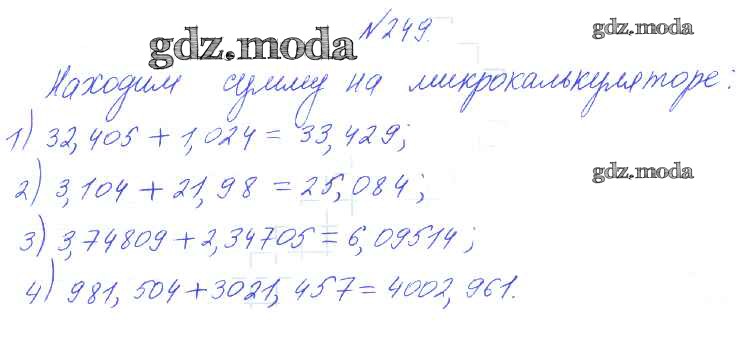 №249.
gdz.moda
gdz.moda
Находим сумму на микрокалькуляторе:
1) 32,405 + 1,024 = 33,429;
2) 3,104 + 21,98 = 25,084;
gdz.moda
3) 3,74809 + 2,34705 = 6,09514;
4) 981,504 + 3021,457 = 4002,961.